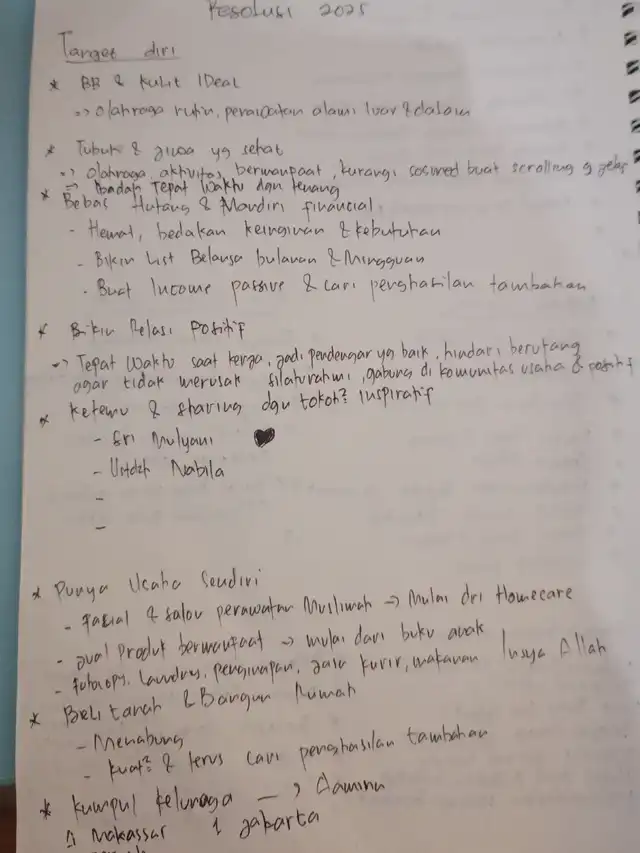 Resolusi 2025
Target diri
* BB & Kulit IDeal
=> Olahraga rutin, perawatan alami luar & dalam
* Tubuh & jiwa yg sehat
=> Olahraga, aktivitas bermanpaat, kurangi sosmed buat scrolling g jelas
=> Ibadah Tepat Waktu dgn tenang
* Bebas Hutang & Mandiri financial
- Hemat, bedakan keinginan & kebutuhan
- Bikin List Belanja bulanan & Mingguan
- Buat Income passive & cari penghasilan tambahan
* Bikin Relasi Positif
=> Tepat Waktu saat kerja, jadi pendengar yg baik, hindari berutang
agar tidak merusak silaturahmi, gabung di komunitas usaha & positif
* Ketemu & sharing dgn tokoh² Inspiratif
- Sri Mulyani
- Ustdzh Nabila
-
-
* Punya Usaha Sendiri
- Facial & salon perawatan Muslimah -> Mulai dri Homecare
- Jual Produk bermanfaat -> mulai dari buku anak
- Fotocopy, Laundry, penginapan, jasa kurir, makanan Insya Allah
* Beli tanah & Bangun Rumah
- Menabung
- kuat² & terus cari penghasilan tambahan
* Kumpul keluarga
Makassar Jakarta